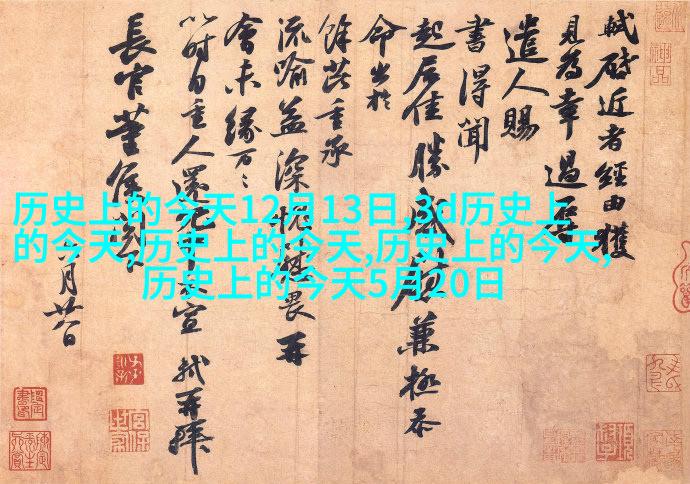 軾啓近者經由獲
見爲幸過
遣人賜
書得聞
起居佳勝感
兼極忝
命出於
餘芘重承
流喻益深
畏再
會未緣万万
以時自重人還
宣軾再拜
長官董侯
六月廿八日
历史上的今天12月13日,3d历史上
的今天,历史上的今天,历史上的今天,
历史上的今天5月20日